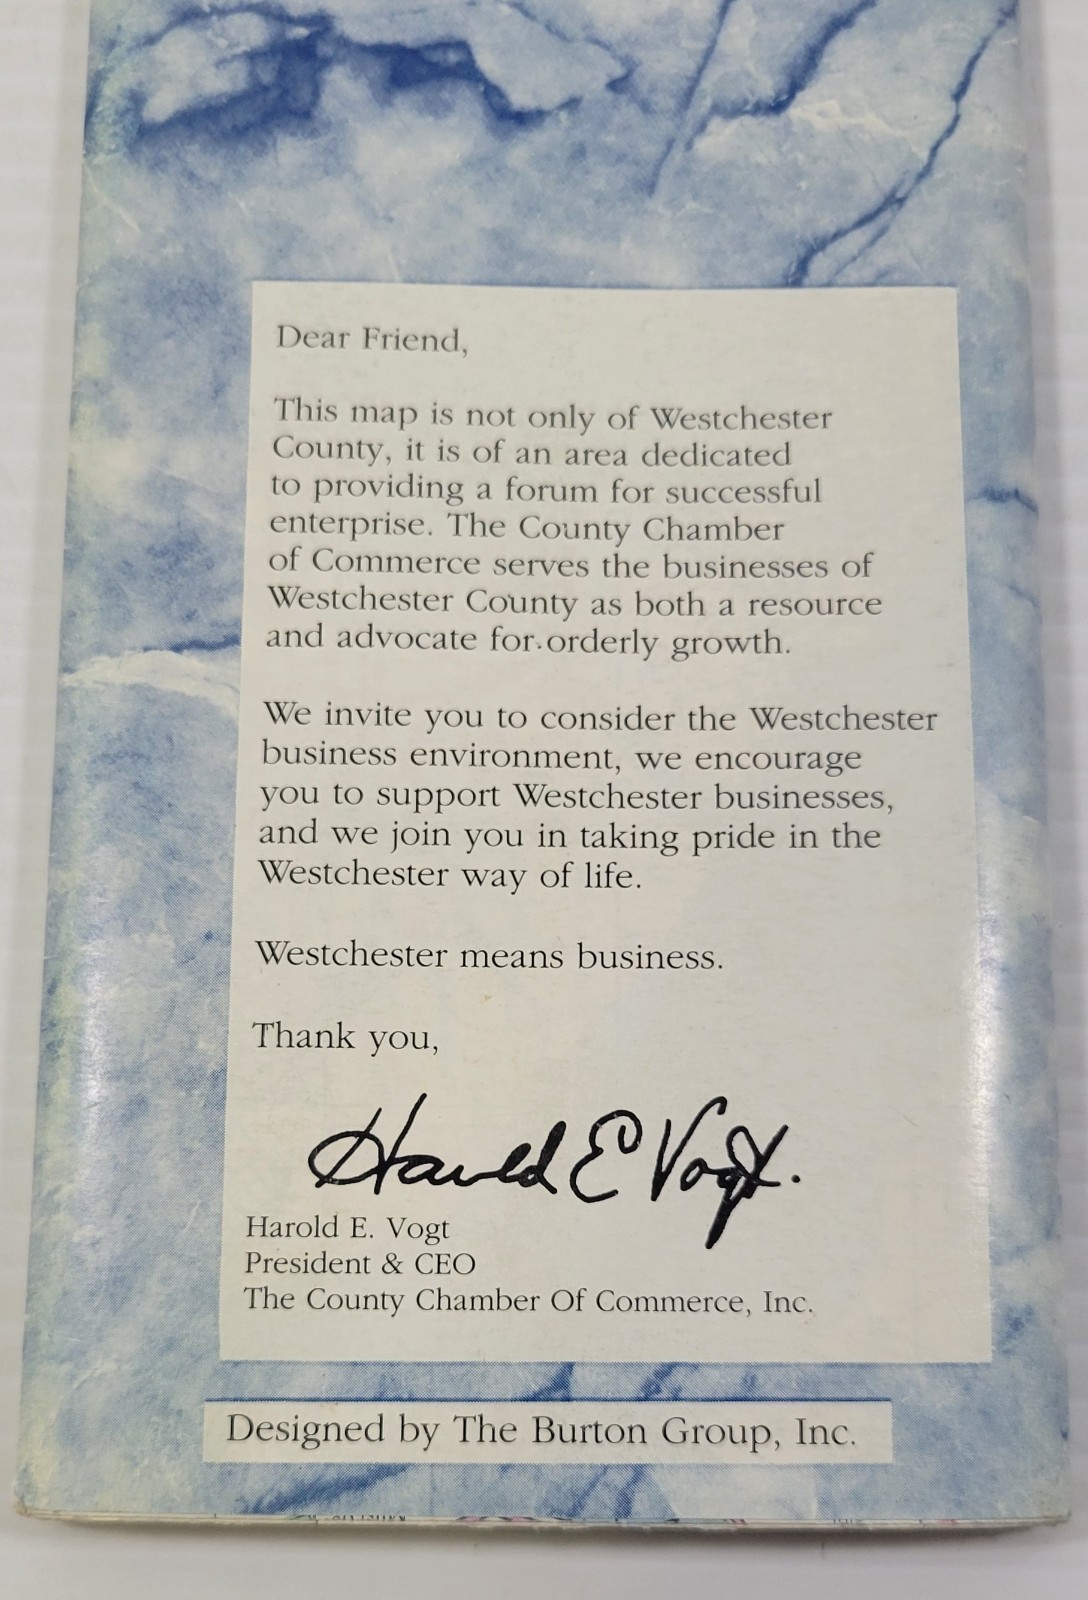 Dear Friend,
This map is not only of Westchester
County, it is of an area dedicated
to providing a forum for successful
enterprise. The County Chamber
of Commerce serves the businesses of
Westchester County as both a resource
and advocate for orderly growth.
We invite you to consider the Westchester
business environment, we encourage
you to support Westchester businesses,
and we join you in taking pride in the
Westchester way of life.
Westchester means business.
Thank you,
Harold E Vogt.
Harold E. Vogt
President & CEO
The County Chamber Of Commerce, Inc.
Designed by The Burton Group, Inc.